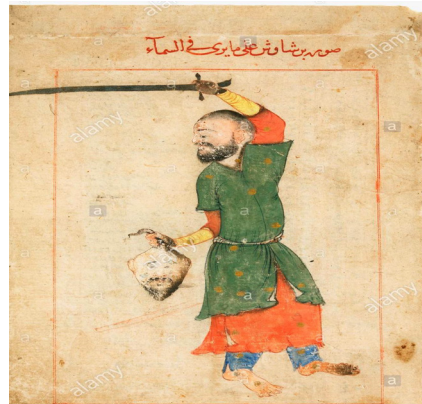 صورة برشاوش على ما يرى في السماء
alamy
alamy
alamy
alamy
alamy
alamy